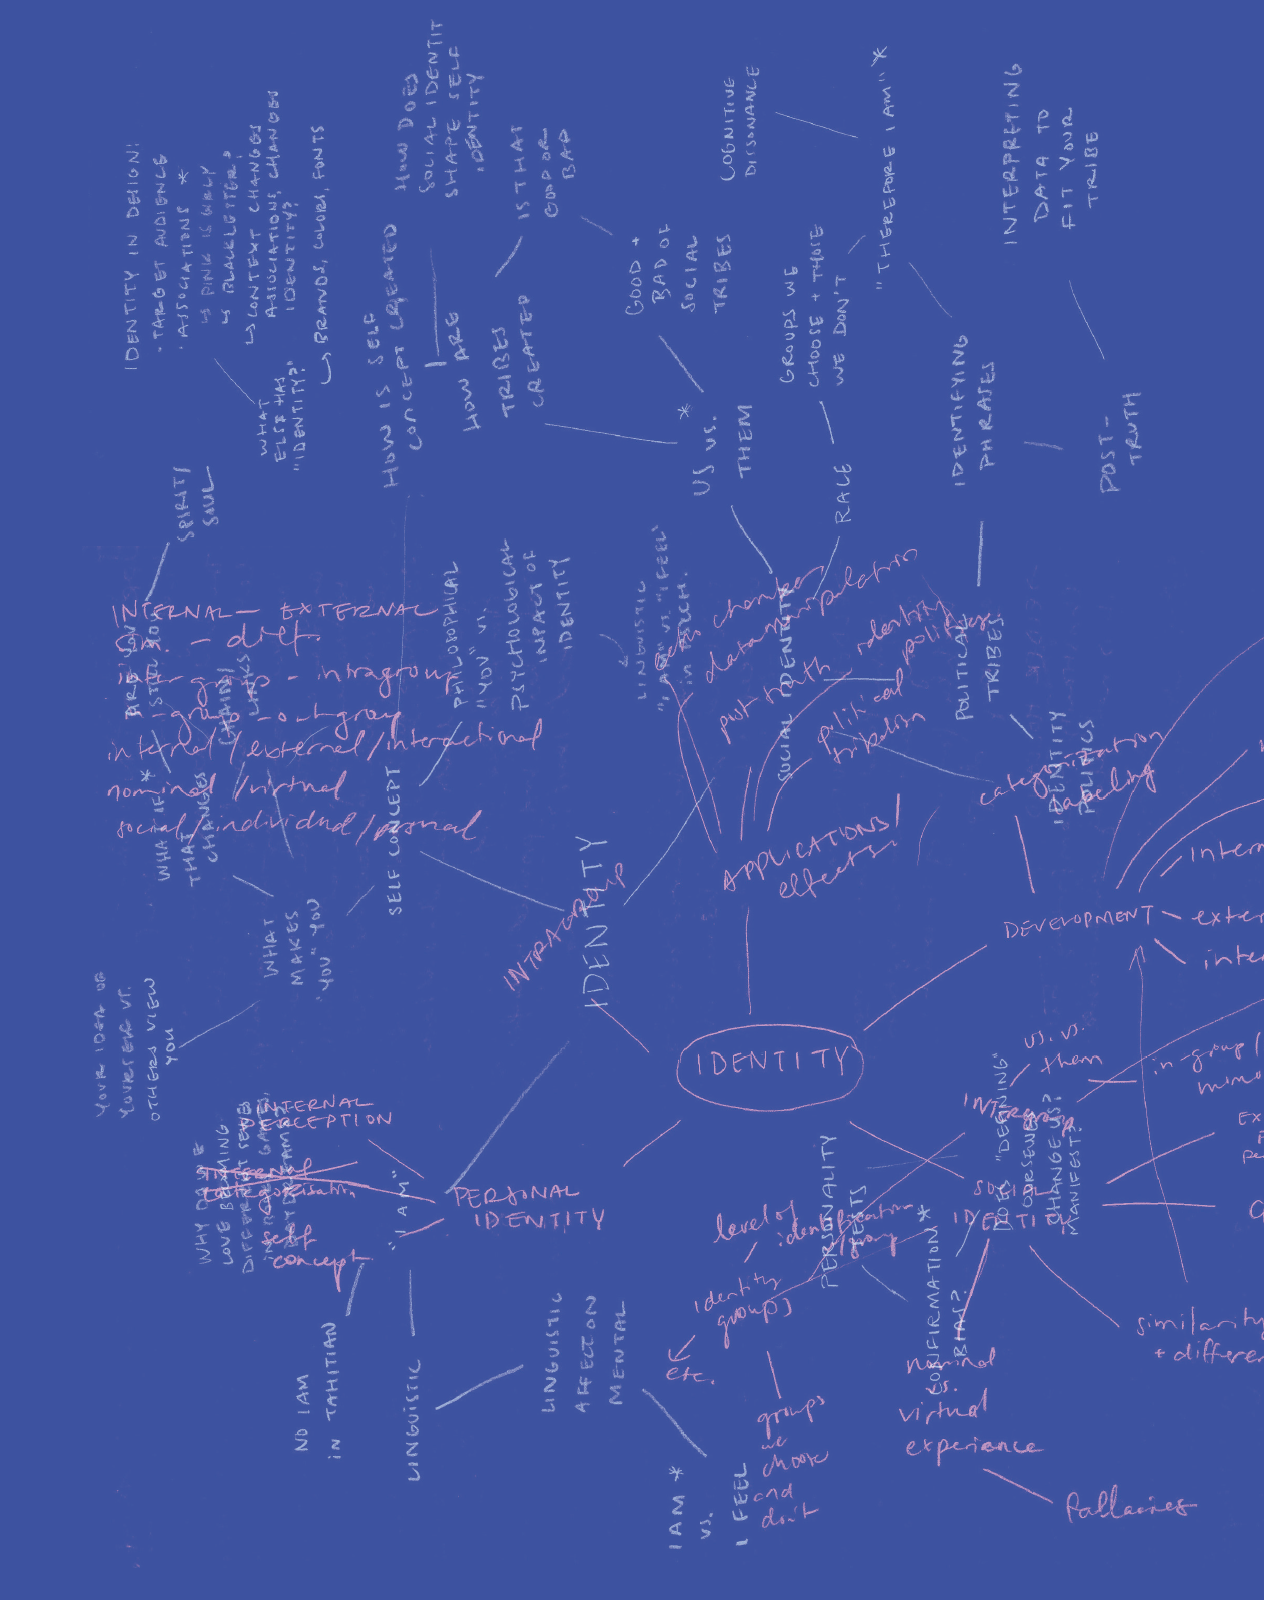 IDENTITY IN DESIGN:
· TARGET AUDIENCE
· ASSOCIATIONS *
↳ PINK IS GIRLY
↳ BLACKLETTER?
↳ CONTEXT CHANGES
ASSOCIATIONS, CHANGES
IDENTITY?
↳ BRANDS, COLORS, FONTS
WHAT
ELSE HAS
"IDENTITY?"
HOW DOES
SOCIAL IDENTIT
SHAPE SELF
IDENTITY
IS THAT
GOOD OR
BAD
HOW IS SELF
CONCEPT CREATED
HOW ARE
TRIBES
CREATED
GOOD +
BAD OF
SOCIAL
TRIBES
COGNITIVE
DISSONANCE
"THEREFORE I AM" *
GROUPS WE
CHOOSE + THOSE
WE DON'T
INTERPRETING
DATA TO
FIT YOUR
TRIBE
IDENTIFYING
PHRASES
POST-
TRUTH
US vs. *
THEM
RACE
SPIRIT/
SOUL
ARE YOU
STILL YOU
WHAT IF *
THAT
CHANGES
WHAT
MAKES
"YOU" YOU
YOUR IDEA OF
YOURSELF VS.
OTHERS VIEW
YOU
PHILOSOPHICAL
"YOU" VS.
PSYCHOLOGICAL
IMPACT OF
IDENTITY
LINGUISTIC
"I AM" VS. "I FEEL"
in PSYCH.
SOCIAL IDENTITY
POLITICAL
TRIBES
IDENTITY
POLITICS
SELF CONCEPT
IDENTITY
WHY DO WE
LOVE BECOMING
DIFFERENT
"I AM"
NO I AM
IN TAHITIAN
LINGUISTIC
LINGUISTIC
AFFECT ON
MENTAL
I AM *
VS.
I FEEL
PERSONALITY
TESTS
CONFIRMATION *
BIAS?
DOES "DEFINING"
OURSELVES
CHANGE US?
MANIFEST?
INTERNAL — EXTERNAL
sim. — diff.
inter-group — intragroup
-group - outgroup
internal / external / interactional
nominal / virtual
social / individual / personal
echo chamber
data manipulation
post truth
identity
politics
political
tribalism
APPLICATIONS/
effects
categorization
labeling
DEVELOPMENT
INTRAGROUP
IDENTITY
INTERNAL
PERCEPTION
self
concept
PERSONAL
IDENTITY
us. vs.
them
in-group/
INTERGROUP
SOCIAL
IDENTITY
level of
identification
w/ group
identity
groups
etc.
groups
we
choose
and
don't
nominal
vs.
virtual
experience
fallacies
similarity
+ differen